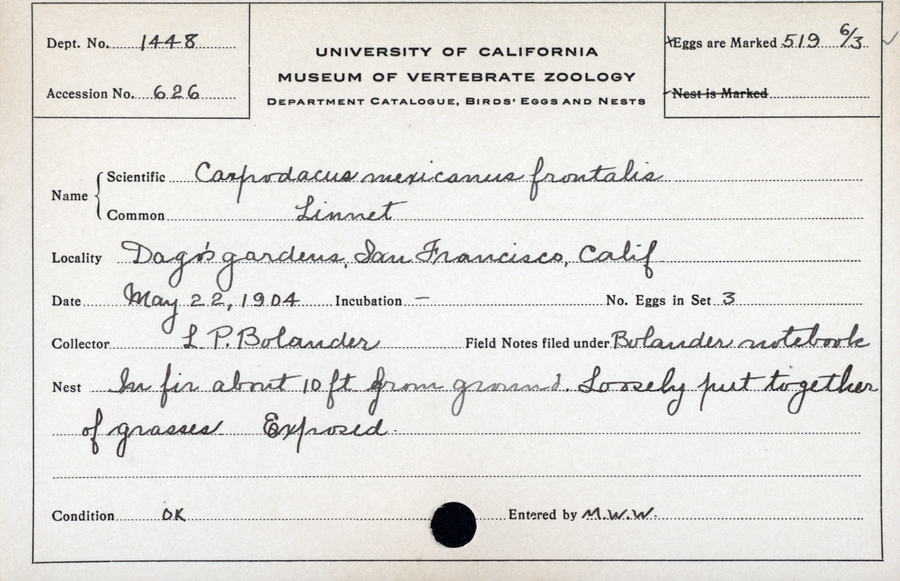 Dept. No. 1448
UNIVERSITY OF CALIFORNIA
MUSEUM OF VERTEBRATE ZOOLOGY
DEPARTMENT CATALOGUE, BIRDS' EGGS AND NESTS
Accession No. 626
Eggs are Marked 519 6/3
Nest is Marked
Name
Scientific Carpodacus mexicanus frontalis
Common Linnet
Locality Dago's gardens, San Francisco, Calif
Date May 22, 1904 Incubation — No. Eggs in Set 3
Collector L. P. Bolander Field Notes filed under Bolander notebook
Nest In fir about 10 ft from ground. Loosely put together
of grasses Exposed.
Condition OK Entered by M.W.W.